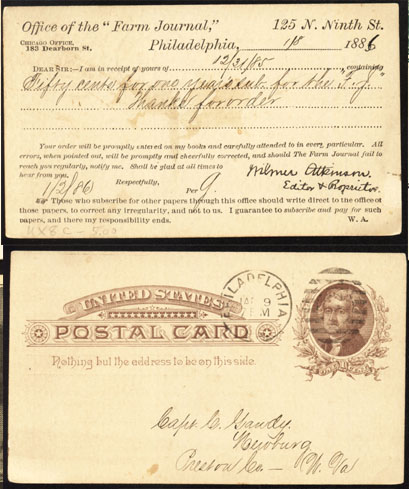 Office of the "Farm Journal," 125 N. Ninth St.
CHICAGO OFFICE,
183 Dearborn St. Philadelphia, 1/8 1886
DEAR SIR:—I am in receipt of yours of 12/31/85 containing
Fifty cents for one year's sub. for the "F. J."
Thanks for order
Your order will be promptly entered on my books and carefully attended to in every particular. All
errors, when pointed out, will be promptly and cheerfully corrected, and should The Farm Journal fail to
reach you regularly, notify me. Shall be glad at all times to
hear from you. Wilmer Atkinson,
1/2/86 Respectfully, Editor & Proprietor.
Per G.
Those who subscribe for other papers through this office should write direct to the office of
those papers, to correct any irregularity, and not to us. I guarantee to subscribe and pay for such
papers, and there my responsibility ends. W. A.
UX8 C - 5.00
PHILADELPHIA
JAN 9
M
UNITED STATES
POSTAL CARD
Nothing but the address to be on this side.
Capt C. Gandy.
Newburg
Preston Co— W. Va